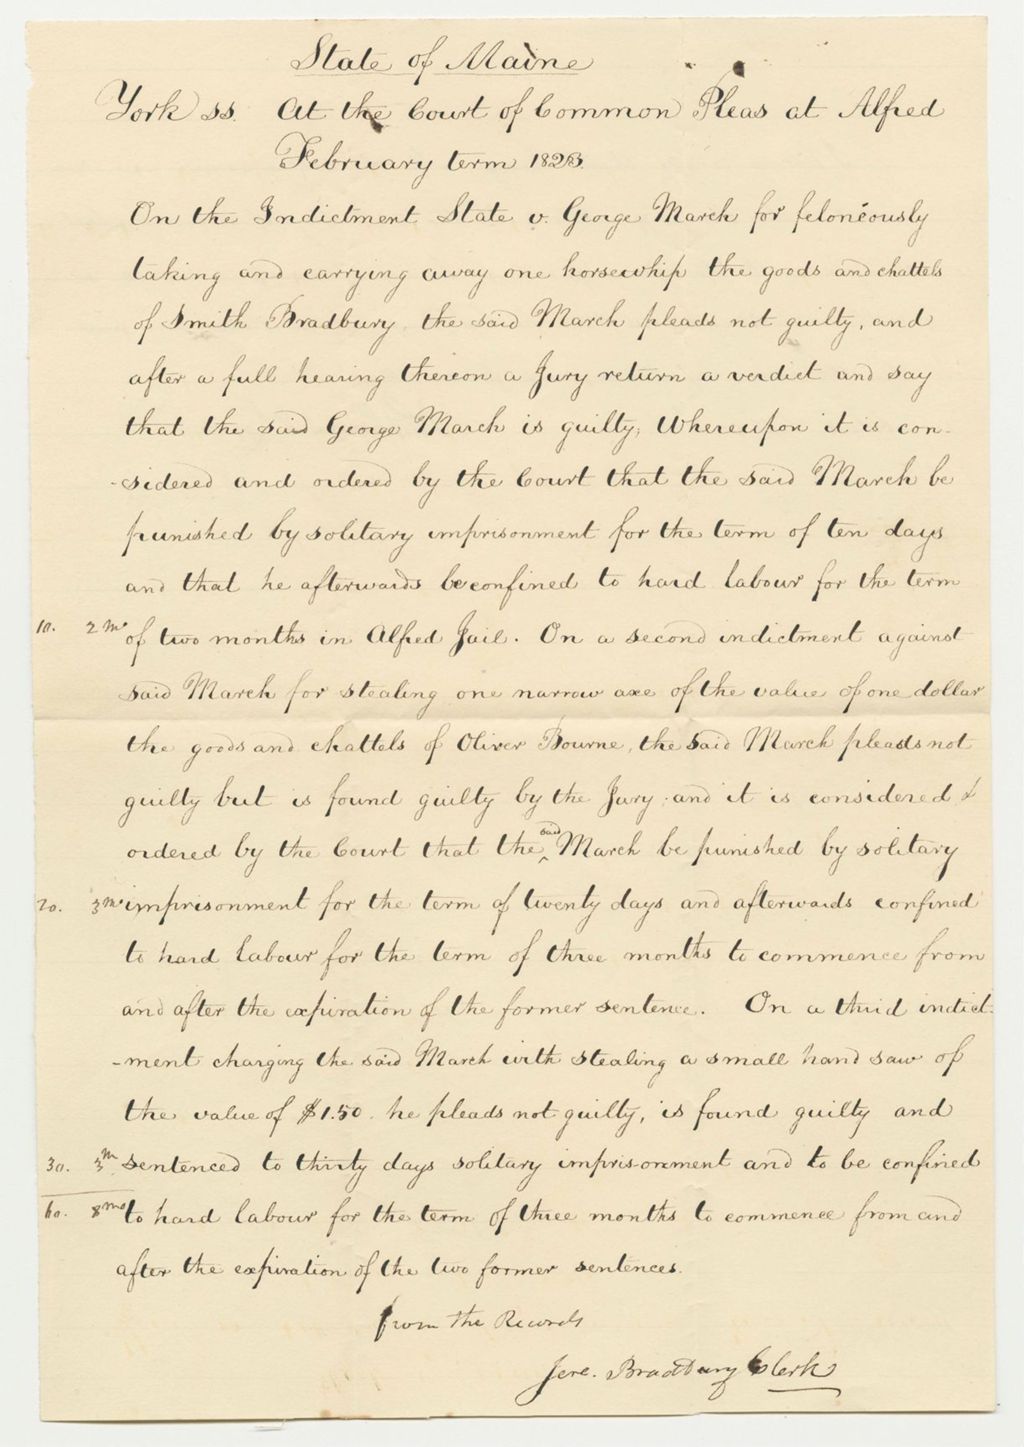 State of Maine
York ss. At the Court of Common Pleas at Alfred
February term 1823.
On the Indictment State v. George March for feloneously
taking and carrying away one horsewhip the goods and chattels
of Smith Bradbury, the said March pleads not guilty, and
after a full hearing thereon a Jury return a verdict and say
that the said George March is guilty; Whereupon it is con-
-sidered and ordered by the Court that the said March be
punished by solitary imprisonment for the term of ten days
and that he afterwards be confined to hard labour for the term
10. 2 mo of two months in Alfred Jail. On a second indictment against
said March for stealing one narrow axe of the value of one dollar
the goods and chattels of Oliver Bourne, the said March pleads not
guilty but is found guilty by the Jury; and it is considered &
ordered by the Court that the said March be punished by solitary
20. 3mo imprisonment for the term of twenty days and afterwards confined
to hard labour for the term of three months to commence from
and after the expiration of the former sentence. On a third indict-
-ment charging the said March with stealing a small hand saw of
the value of $1.50 he pleads not guilty, is found guilty and
30. 3m sentenced to thirty days solitary imprisonment and to be confined
60. 8mo to hard labour for the term of three months to commence from and
after the expiration of the two former sentences.
from the Records
Jere. Bradbury Clerk